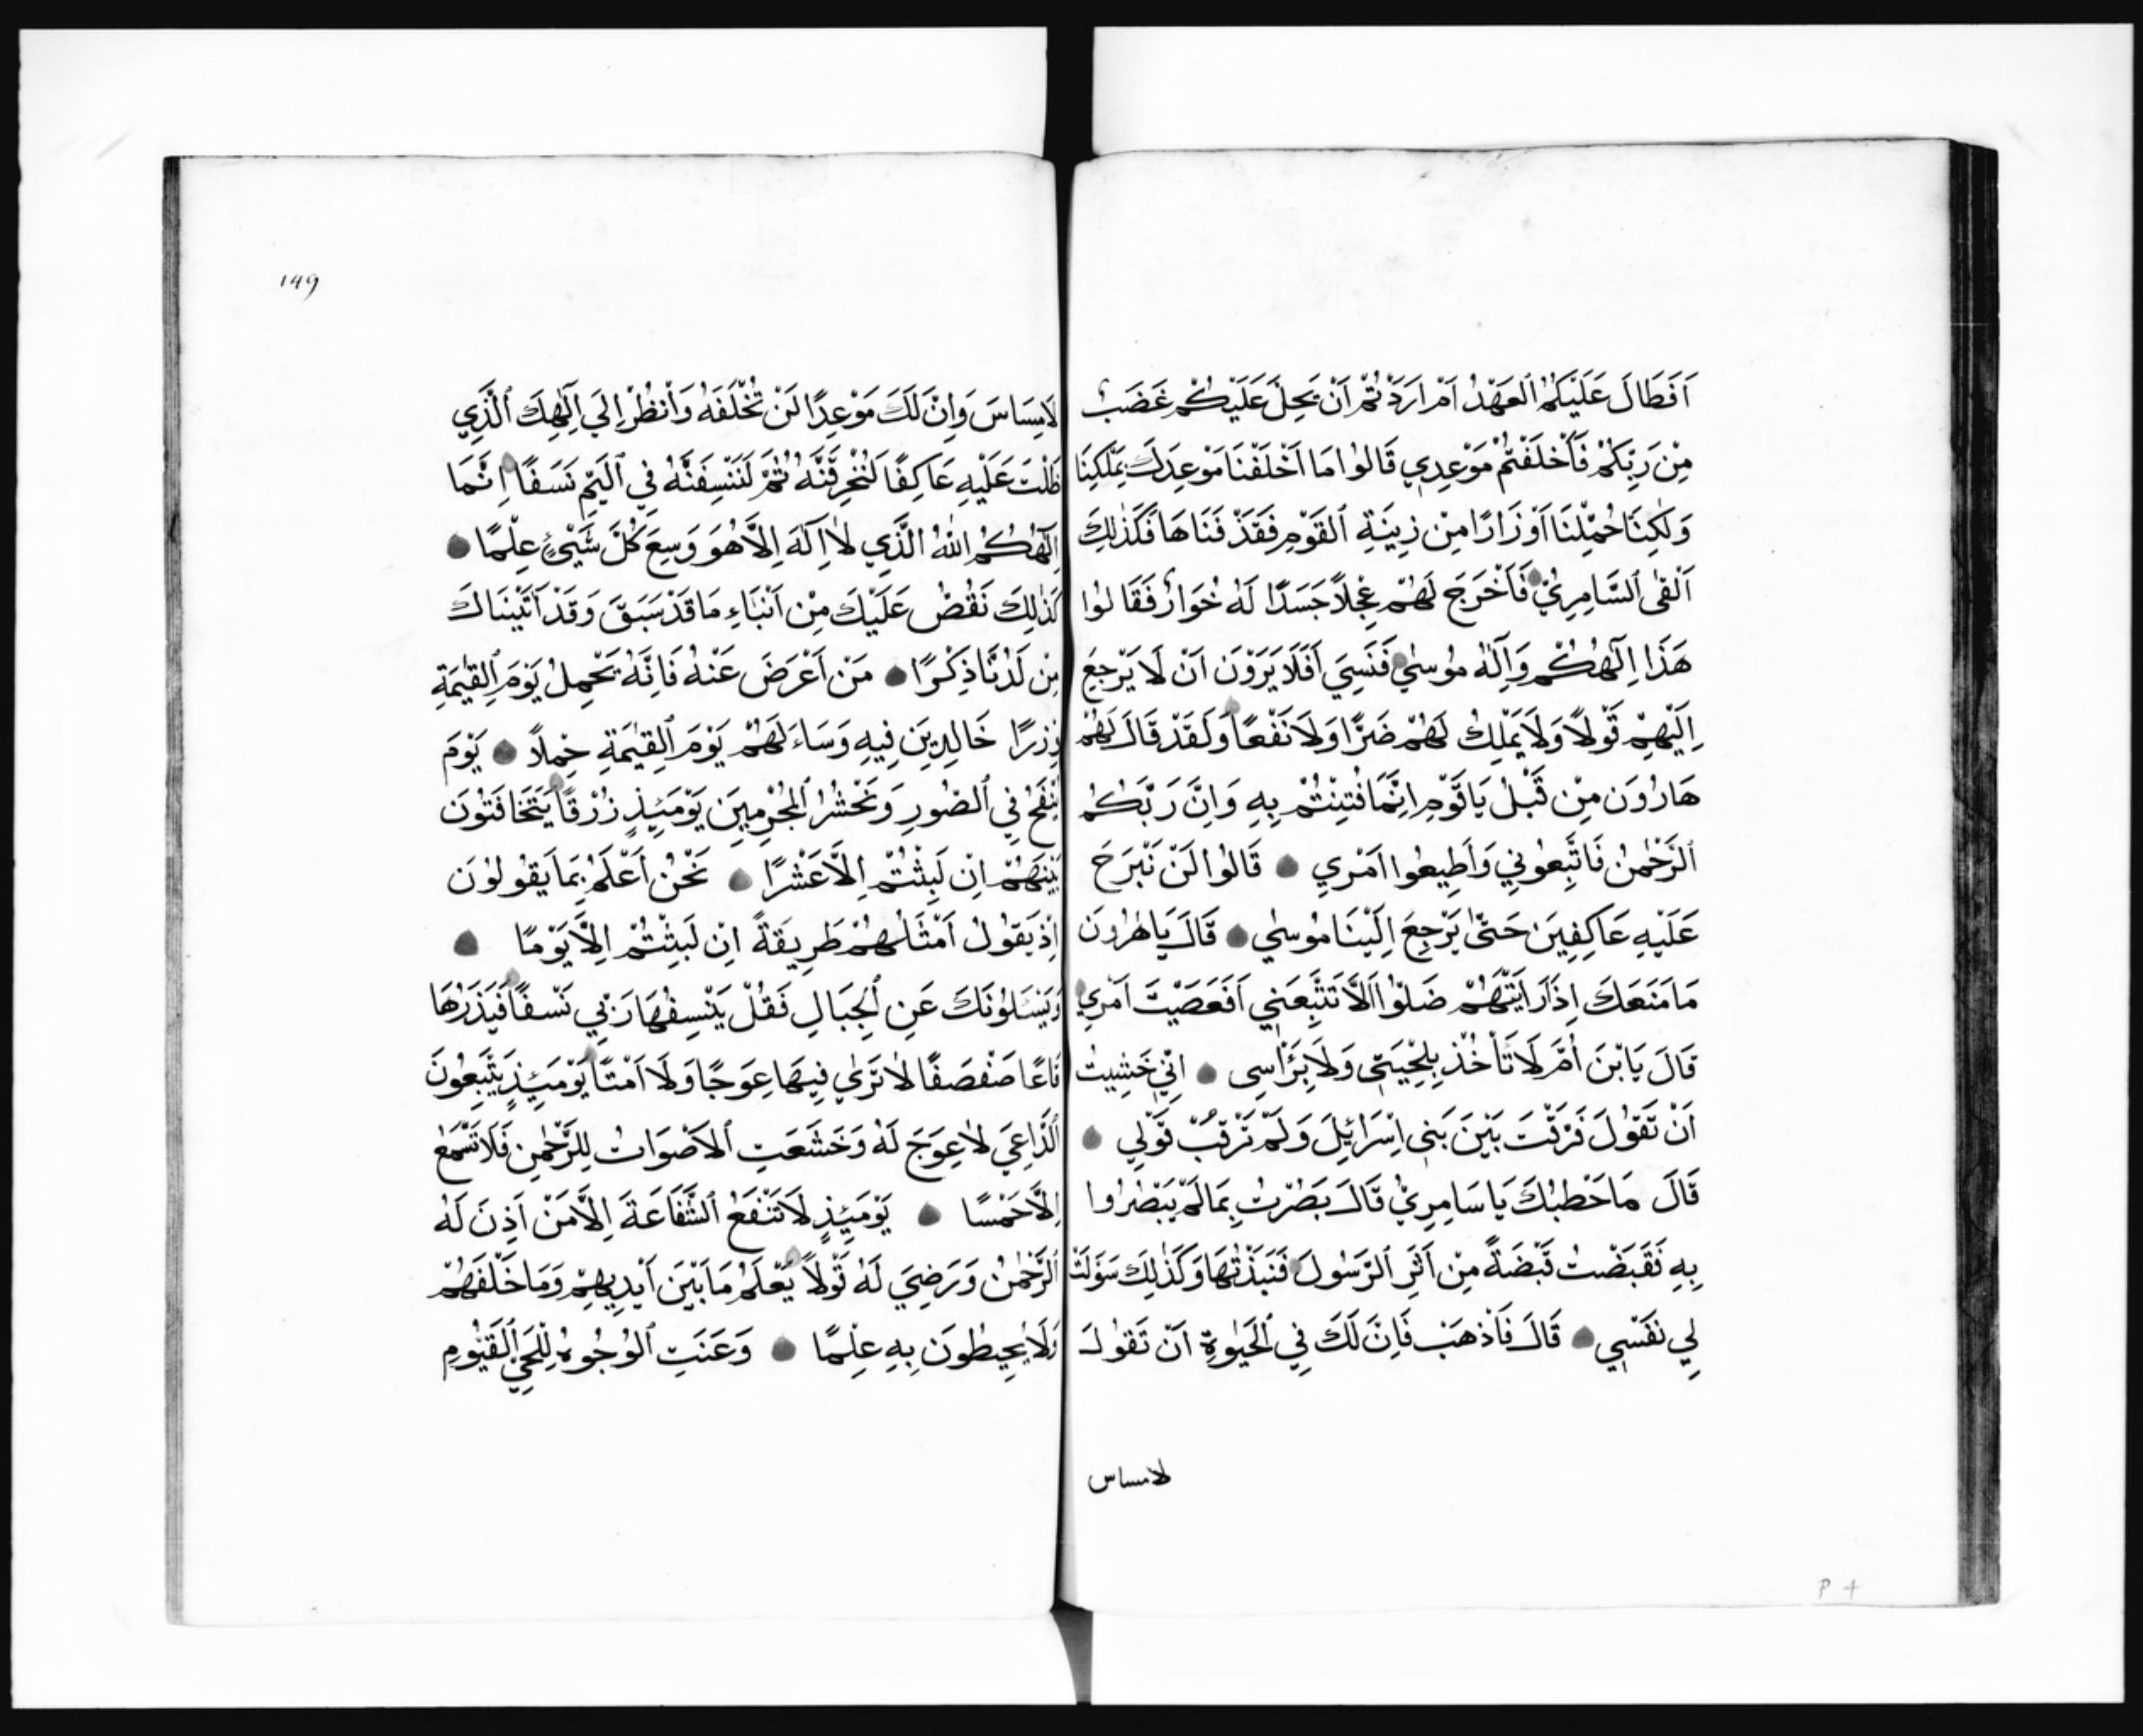 اَفَطَالَ عَلَيْكُمُ ٱلعَهْدُ اَمْ اَرَدْتُمْ اَنْ يَحِلَّ عَلَيْكُمْ غَضَبٌ
مِنْ رَبِّكُمْ فَاَخْلَفْتُمْ مَوْعِدِي قَالُوا مَا اَخْلَفْنَا مَوْعِدَكَ بِمَلْكِنَا
وَلٰكِنَّا حُمِّلْنَا اَوْزَارًا مِنْ زِينَةِ ٱلقَوْمِ فَقَذَفْنَاهَا فَكَذٰلِكَ
اَلْقَى ٱلسَّامِرِيُّ فَاَخْرَجَ لَهُمْ عِجْلاً جَسَدًا لَهُ خُوَارٌ فَقَالُوا
هَذَا اِلٰهُكُمْ وَاِلٰهُ مُوسٰي فَنَسِيَ اَفَلَا يَرَوْنَ اَنْ لَا يَرْجِعُ
اِلَيْهِمْ قَوْلاً وَلَا يَمْلِكُ لَهُمْ ضَرًّا وَلَا نَفْعًا وَلَقَدْ قَالَ لَهُمْ
هَارُونَ مِنْ قَبْلُ يَا قَوْمِ اِنَّمَا فُتِنْتُمْ بِهِ وَاِنَّ رَبَّكُمُ
ٱلرَّحْمٰنُ فَاتَّبِعُونِي وَاَطِيعُوا اَمْرِي ● قَالُوا لَنْ نَبْرَحَ
عَلَيْهِ عَاكِفِينَ حَتّٰى يَرْجِعَ اِلَيْنَا مُوسٰي ● قَالَ يَا هٰرُونَ
مَا مَنَعَكَ اِذْ رَاَيْتَهُمْ ضَلُّوا اَلاَّ تَتَّبِعَنِي اَفَعَصَيْتَ اَمْرِي
قَالَ يَا بْنَ اُمَّ لَا تَأْخُذْ بِلِحْيَتِي وَلَا بِرَأْسِي ● اِنِّي خَشِيتُ
اَنْ تَقُولَ فَرَّقْتَ بَيْنَ بَنِي اِسْرَائِلَ وَلَمْ تَرْقُبْ قَوْلِي ●
قَالَ مَا خَطْبُكَ يَا سَامِرِيُّ قَالَ بَصُرْتُ بِمَا لَمْ يَبْصُرُوا
بِهِ فَقَبَضْتُ قَبْضَةً مِنْ اَثَرِ ٱلرَّسُولِ فَنَبَذْتُهَا وَكَذٰلِكَ سَوَّلَتْ
لِي نَفْسِي ● قَالَ فَاَذْهَبْ فَاِنَّ لَكَ فِي ٱلحَيٰوةِ اَنْ تَقُولَ
لامساس
149
لَا مِسَاسَ وَاِنَّ لَكَ مَوْعِدًا لَنْ تُخْلَفَهُ وَاَنْظُرْ اِلَي اِلٰهِكَ ٱلَّذِي
ظَلْتَ عَلَيْهِ عَاكِفًا لَنُحَرِّقَنَّهُ ثُمَّ لَنَنْسِفَنَّهُ فِي ٱليَمِّ نَسَفًا اِنَّمَا
اِلٰهُكُمُ اللّٰهُ الَّذِي لَا اِلٰهَ اِلاَّ هُوَ وَسِعَ كُلَّ شَيْئٍ عِلْمًا ●
كَذٰلِكَ نَقُصُّ عَلَيْكَ مِنْ اَنْبَاءِ مَا قَدْ سَبَقَ وَقَدْ اٰتَيْنَاكَ
مِنْ لَدُنَّا ذِكْرًا ● مَنْ اَعْرَضَ عَنْهُ فَاِنَّهُ يَحْمِلُ يَوْمَ ٱلقِيٰمَةِ
وِزرًا خَالِدِينَ فِيهِ وَسَاءَ لَهُمْ يَوْمَ ٱلقِيٰمَةِ حِمْلاً ● يَوْمَ
يُنْفَخُ فِي ٱلصُّورِ وَنَحْشُرُ ٱلمُجْرِمِينَ يَوْمَئِذٍ زُرْقًا يَتَخَافَتُونَ
بَيْنَهُمْ اِنْ لَبِثْتُمْ اِلاَّ عَشْرًا ● نَحْنُ اَعْلَمُ بِمَا يَقُولُونَ
اِذْ يَقُولُ اَمْثَلُهُمْ طَرِيقَةً اِنْ لَبِثْتُمْ اِلاَّ يَوْمًا ●
وَيَسْـَٔلُونَكَ عَنِ ٱلجِبَالِ فَقُلْ يَنْسِفُهَا رَبِّي نَسْفًا فَيَذَرُهَا
قَاعًا صَفْصَفًا لَا تَرٰي فِيهَا عِوَجًا وَلَا اَمْتًا يَوْمَئِذٍ يَتَّبِعُونَ
ٱلدَّاعِيَ لَا عِوَجَ لَهُ وَخَشَعَتِ ٱلاَصْوَاتُ لِلرَّحْمٰنِ فَلَا تَسْمَعُ
اِلاَّ هَمْسًا ● يَوْمَئِذٍ لَا تَنْفَعُ ٱلشَّفَاعَةَ اِلاَّ مَنْ اَذِنَ لَهُ
ٱلرَّحْمٰنُ وَرَضِيَ لَهُ قَوْلاً يَعْلَمُ مَا بَيْنَ اَيْدِيهِمْ وَمَا خَلْفَهُمْ
وَلَا يُحِيطُونَ بِهِ عِلْمًا ● وَعَنَتِ ٱلوُجُوهُ لِلْحَيِّ ٱلقَيُّومِ
P 4